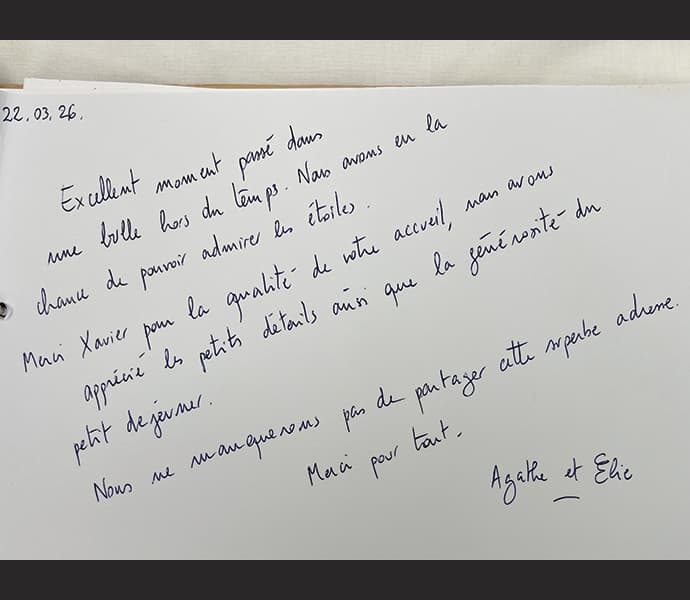 22.03.26.
Excellent moment passé dans
une bulle hors du temps. Nous avons eu la
chance de pouvoir admirer les étoiles.
Merci Xavier pour la qualité de votre accueil, nous avons
apprécié les petits détails ainsi que la générosité du
petit dejeuner.
Nous ne manquerons pas de partager cette superbe adresse.
Merci pour tout.
Agathe et Elie